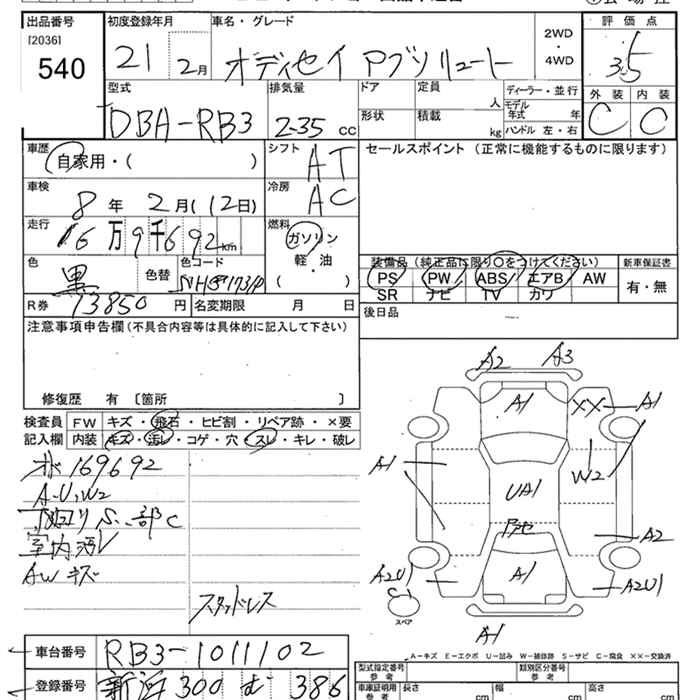 出品番号 初度登録年月 車名・グレード 評価点
[2036]
540
21 2月 オデッセイ アブソリュート 2WD ・ 4WD 3.5
外装 内装
C C
型式 排気量 ドア 定員 人 ディーラー・並行
DBA-RB3 2.35 cc 形状 積載 kg モデル年式 年
ハンドル 左・右
車歴 シフト セールスポイント (正常に機能するものに限ります)
自家用・( ) AT
車検 冷房
8年 2月(12日) AC
走行 燃料
16万9千692km ガソリン
軽・油
( )
色 色替 色コード
黒
装備品(純正品に限り○をつけてください) 新車保証書
PS PW ABS エアB AW 有・無
SR ナビ TV カワ
R券 13850円 名変期限 月 日
後日品
注意事項申告欄(不具合内容等は具体的に記入して下さい)
修復歴 有 [箇所 ]
検査員記入欄 FW キズ・飛石・ヒビ割・リペア跡・×要
内装 キズ・汚レ・コゲ・穴・スレ・キレ・破レ
169692
A・U,W2
室内汚レ
AWキズ
スタッドレス
A2 A3
A1 XX A1
A1 W2
UA1
A2
A2U1 A1 A2U1
スペア
A1
A-キズ E-エクボ U-凹み W-補修跡 S-サビ C-腐食 XX-交換済
車台番号 RB3-1011102
登録番号 300 む 386
型式指定番号 参考 類別区分番号 参考
車庫証明用 参考 長さ cm 幅 cm 高さ cm